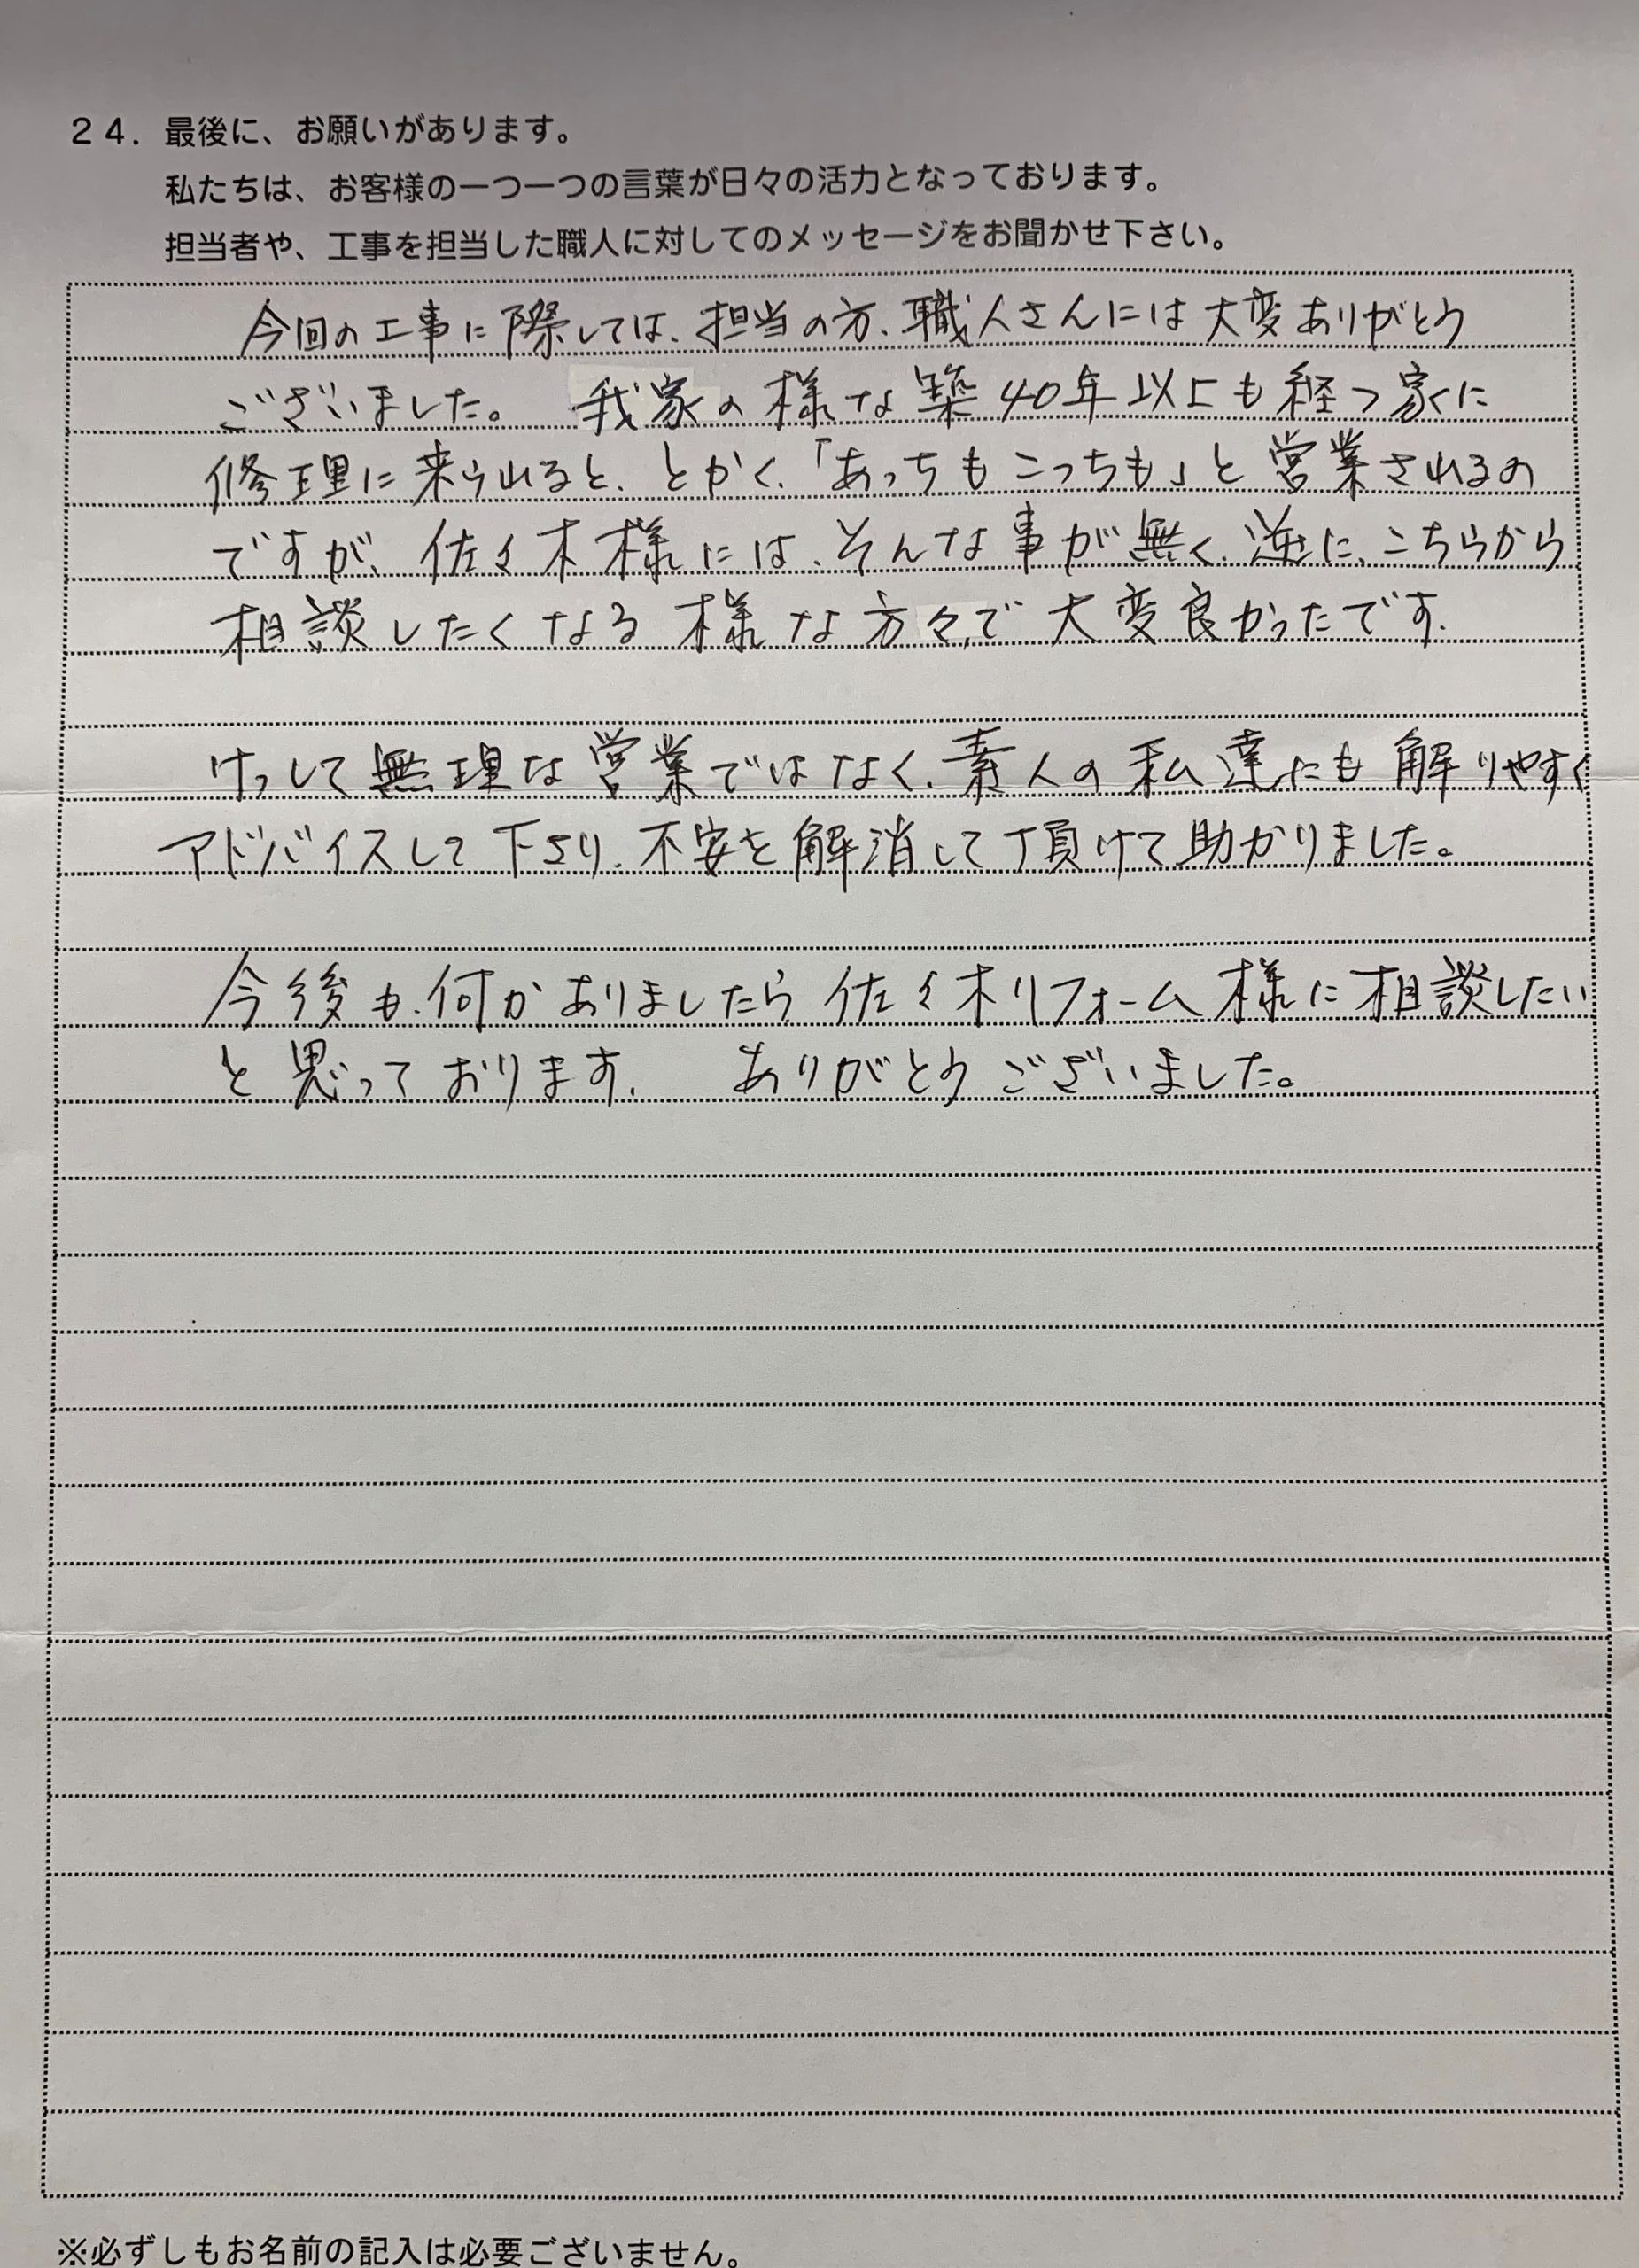 ２４．最後に、お願いがあります。
私たちは、お客様の一つ一つの言葉が日々の活力となっております。
担当者や、工事を担当した職人に対してのメッセージをお聞かせ下さい。
今回の工事に際しては、担当の方、職人さんには大変ありがとう
ございました。 我家の様な築40年以上も経つ家に
修理に来られると、とかく、「あっちもこっちも」と営業されるの
ですが、佐々木様には、そんな事が無く、逆に、こちらから
相談したくなる様な方々で大変良かったです。
けっして無理な営業ではなく、素人の私達にも解りやすく
アドバイスして下さり、不安を解消して頂けて助かりました。
今後も、何かありましたら、佐々木リフォーム様に相談したい
と思っております。 ありがとうございました。
※必ずしもお名前の記入は必要ございません。